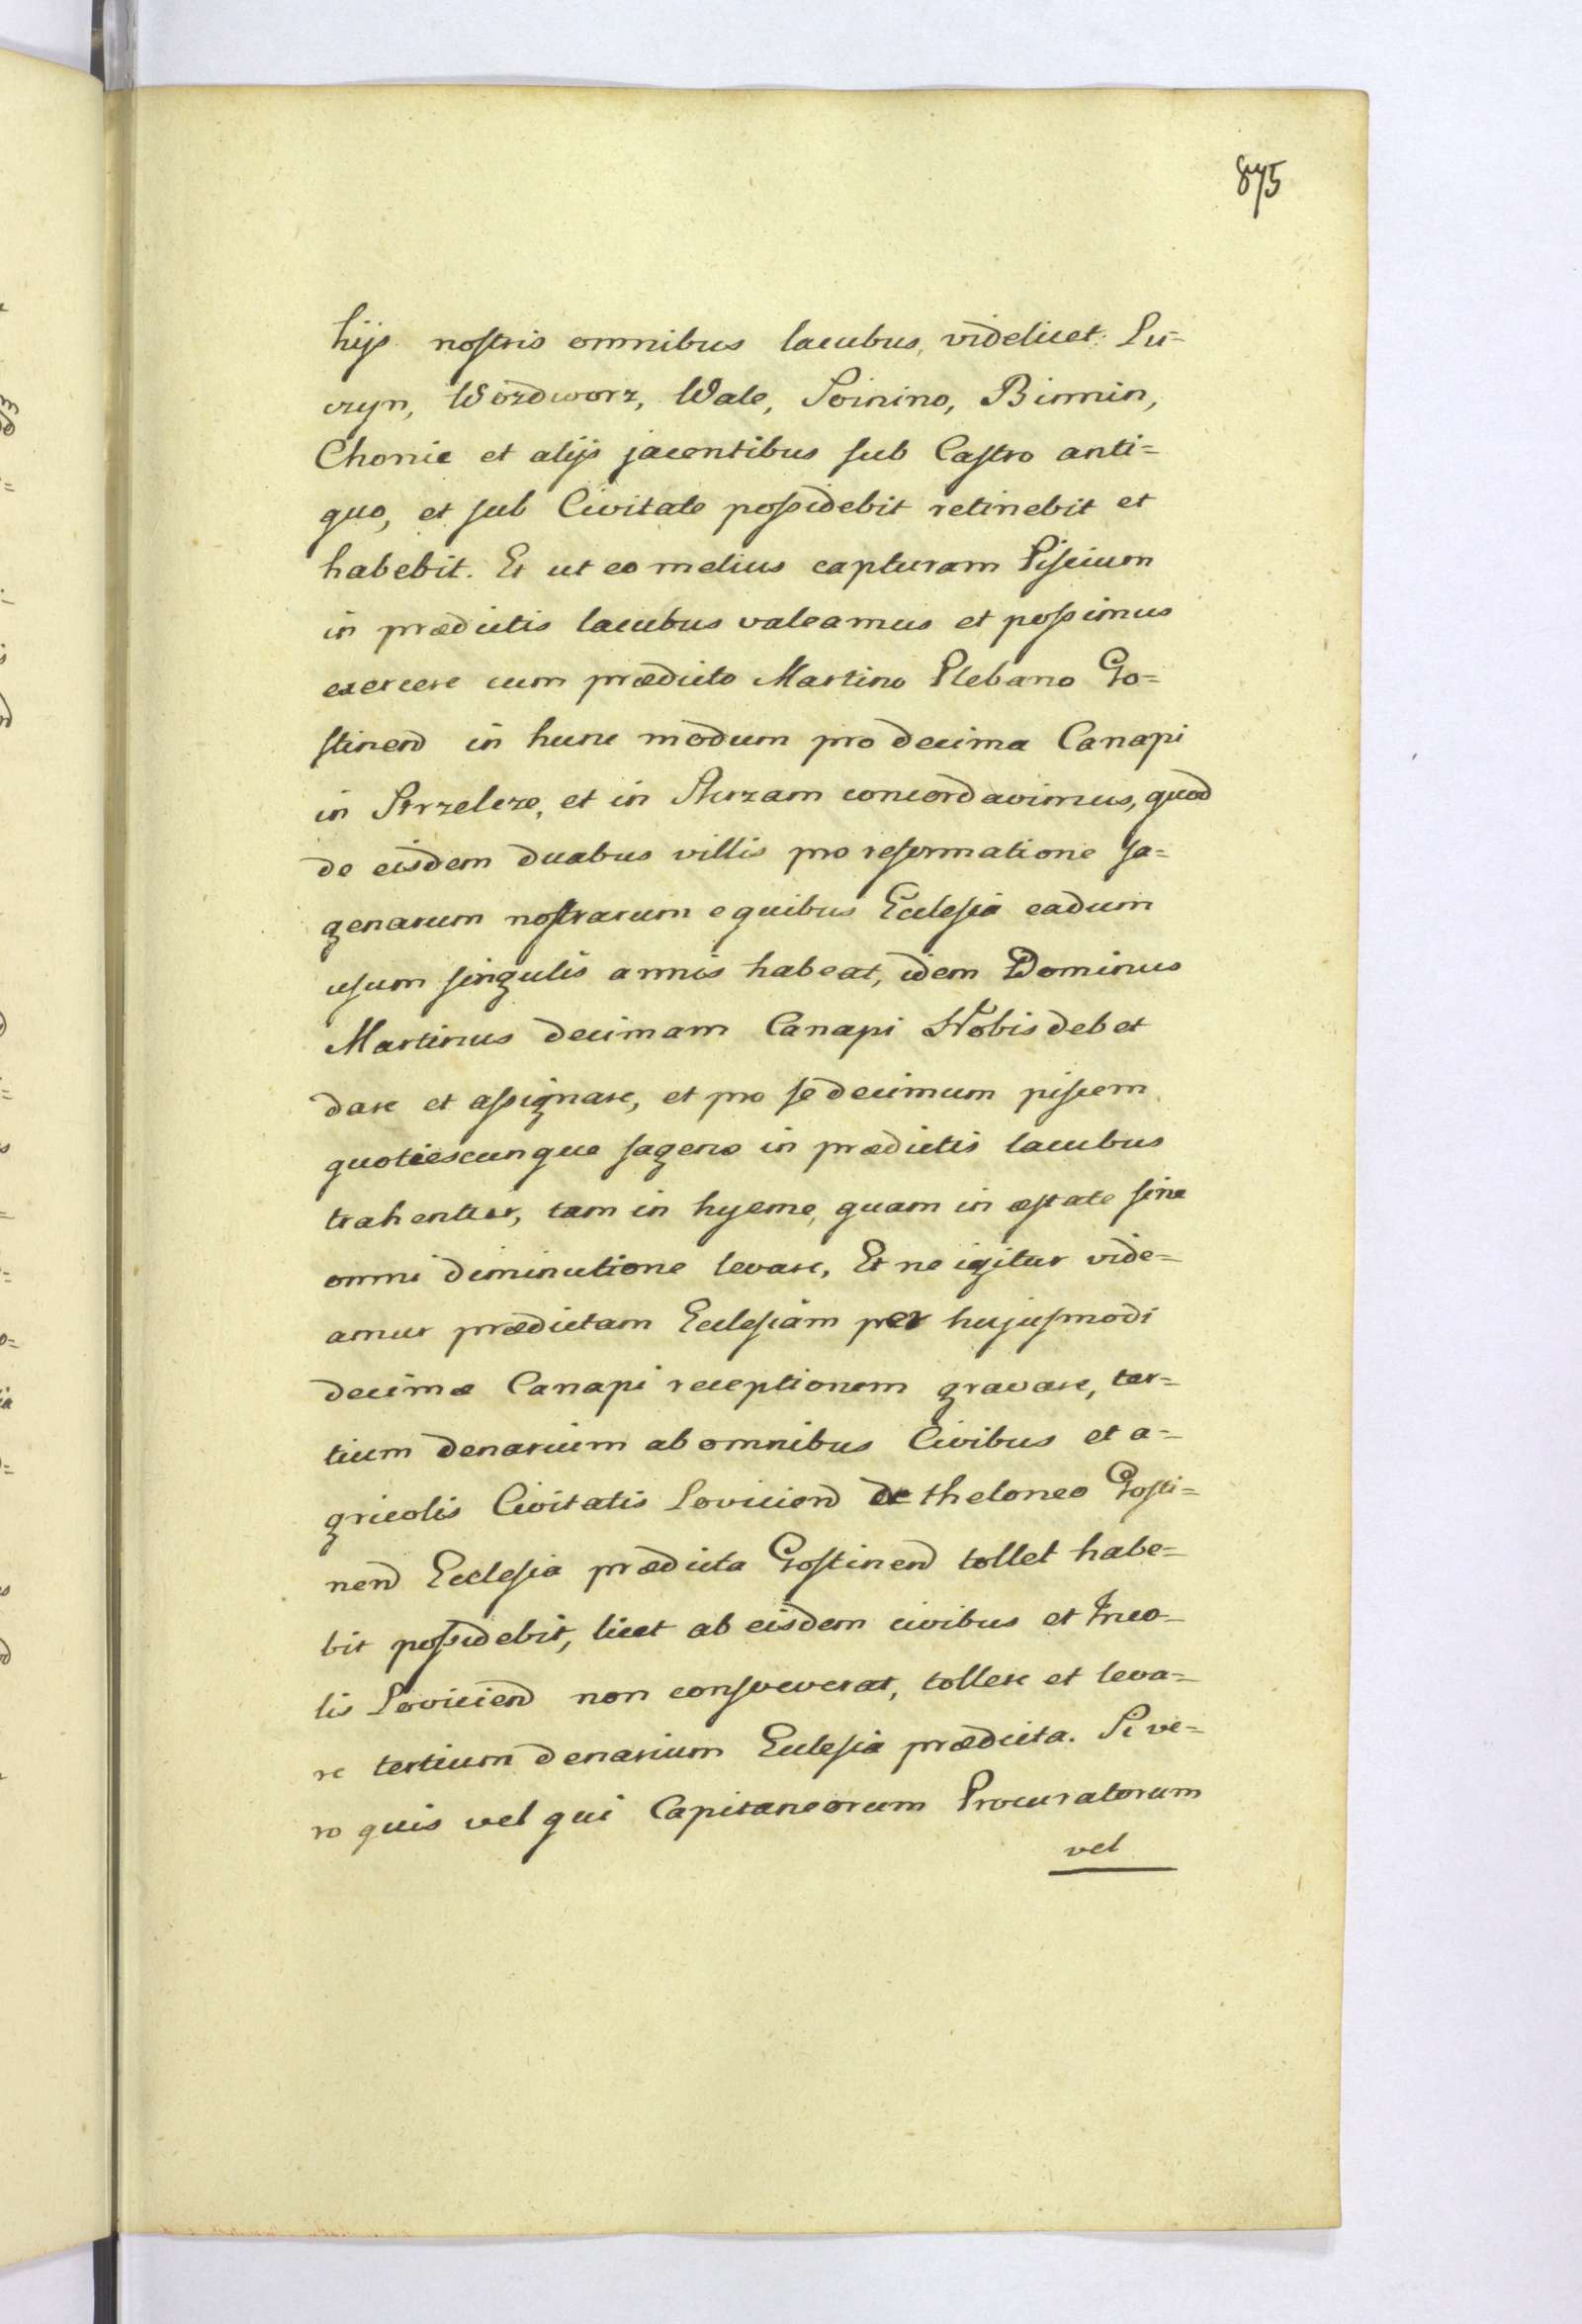 875
hijs nostris omnibus lacubus, videlicet: Lu=
czyn, Wozdworz, Wale, Soinino, Birmin,
Chonie et alijs jacentibus sub Castro anti=
quo, et sub Civitate possidebit retinebit et
habebit. Et ut eo melius capturam Piscium
in prædictis lacubus valeamus et possimus
exercere cum prædicto Martino Plebano Go=
stinen in hunc modum pro decima Canapi
in Strzelcze, et in concordavimus, quod
de eisdem duabus villis pro reformatione sa=
genarum nostrarum e quibus Ecclesia eadum
usum singulis annis habeat, idem Dominus
Martinus decimam Canapi Nobis debet
dare et assignare, et pro se decimum piscem
quotiescunque sagenæ in prædictis lacubus
trahentur, tam in hyeme, quam in æstate sine
omni diminutione levare, Et ne igitur vide=
amur prædictam Ecclesiam per hujusmodi
decimæ Canapi receptionem gravare, ter=
tium denarium ab omnibus Civibus et a=
gricolis Civitatis Lovicien de theloneo Gosti=
nen Ecclesia prædicta Gostinen tollet habe=
bit possidebit, licet ab eisdem civibus et Inco=
lis Lovicien non consveverat, tollere et leva=
re tertium denarium Ecclesia prædicta. Si ve=
ro quis vel qui Capitaneorum Procuratorum
vel